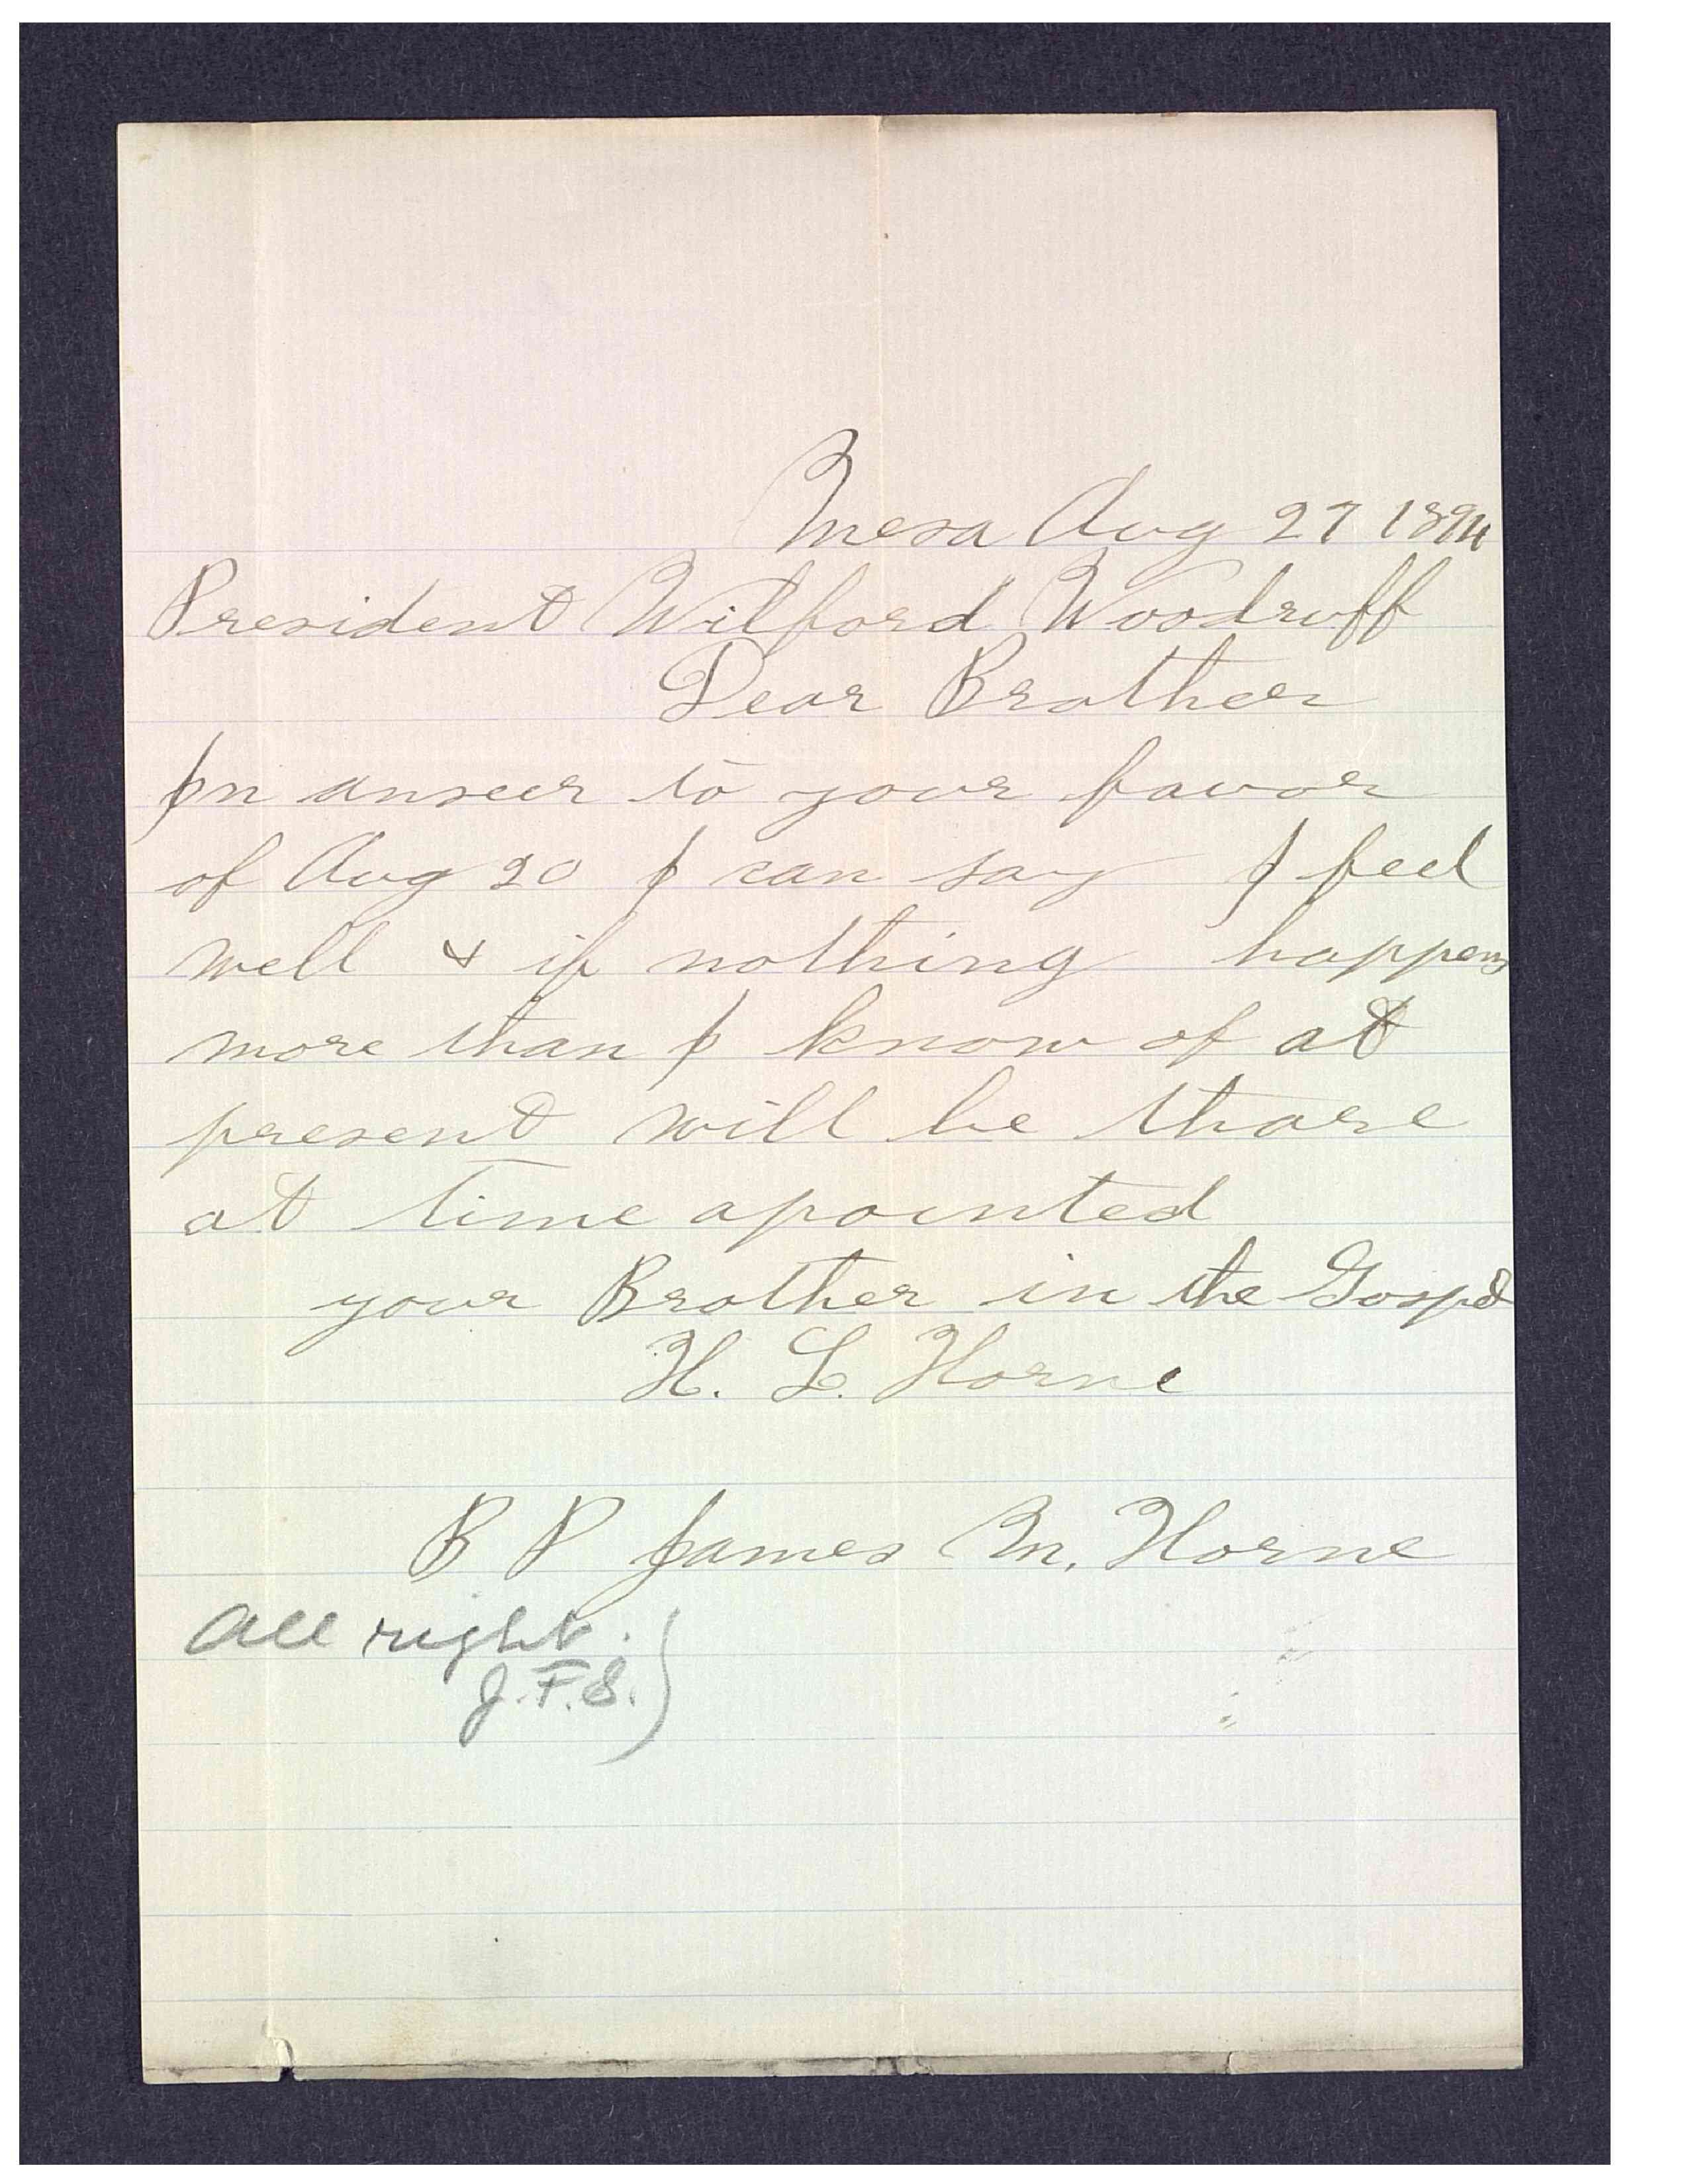 Mesa Aug 27 1894
President Wilford Woodruff
Dear Brother
In anseer to your favor
of Aug 20 I can say I feel
well & if nothing happens
more than I know of at
present will be thare
at time apointed
your Brother in the Gospel
H. L. Horne
B P James M. Horne
All right.
J. F. S.)